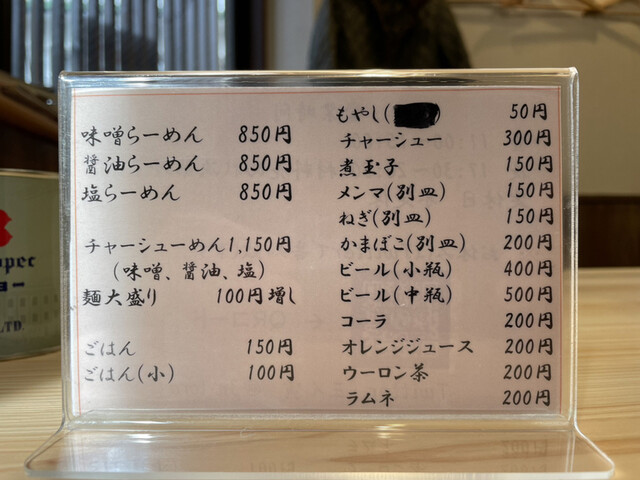 味噌らーめん 850円
醤油らーめん 850円
塩らーめん 850円
チャーシューめん 1,150円
(味噌、醤油、塩)
麺大盛り 100円増し
ごはん 150円
ごはん(小) 100円
もやし( 50円
チャーシュー 300円
煮玉子 150円
メンマ(別皿) 150円
ねぎ(別皿) 150円
かまぼこ(別皿) 200円
ビール(小瓶) 400円
ビール(中瓶) 500円
コーラ 200円
オレンジジュース 200円
ウーロン茶 200円
ラムネ 200円
LTD.